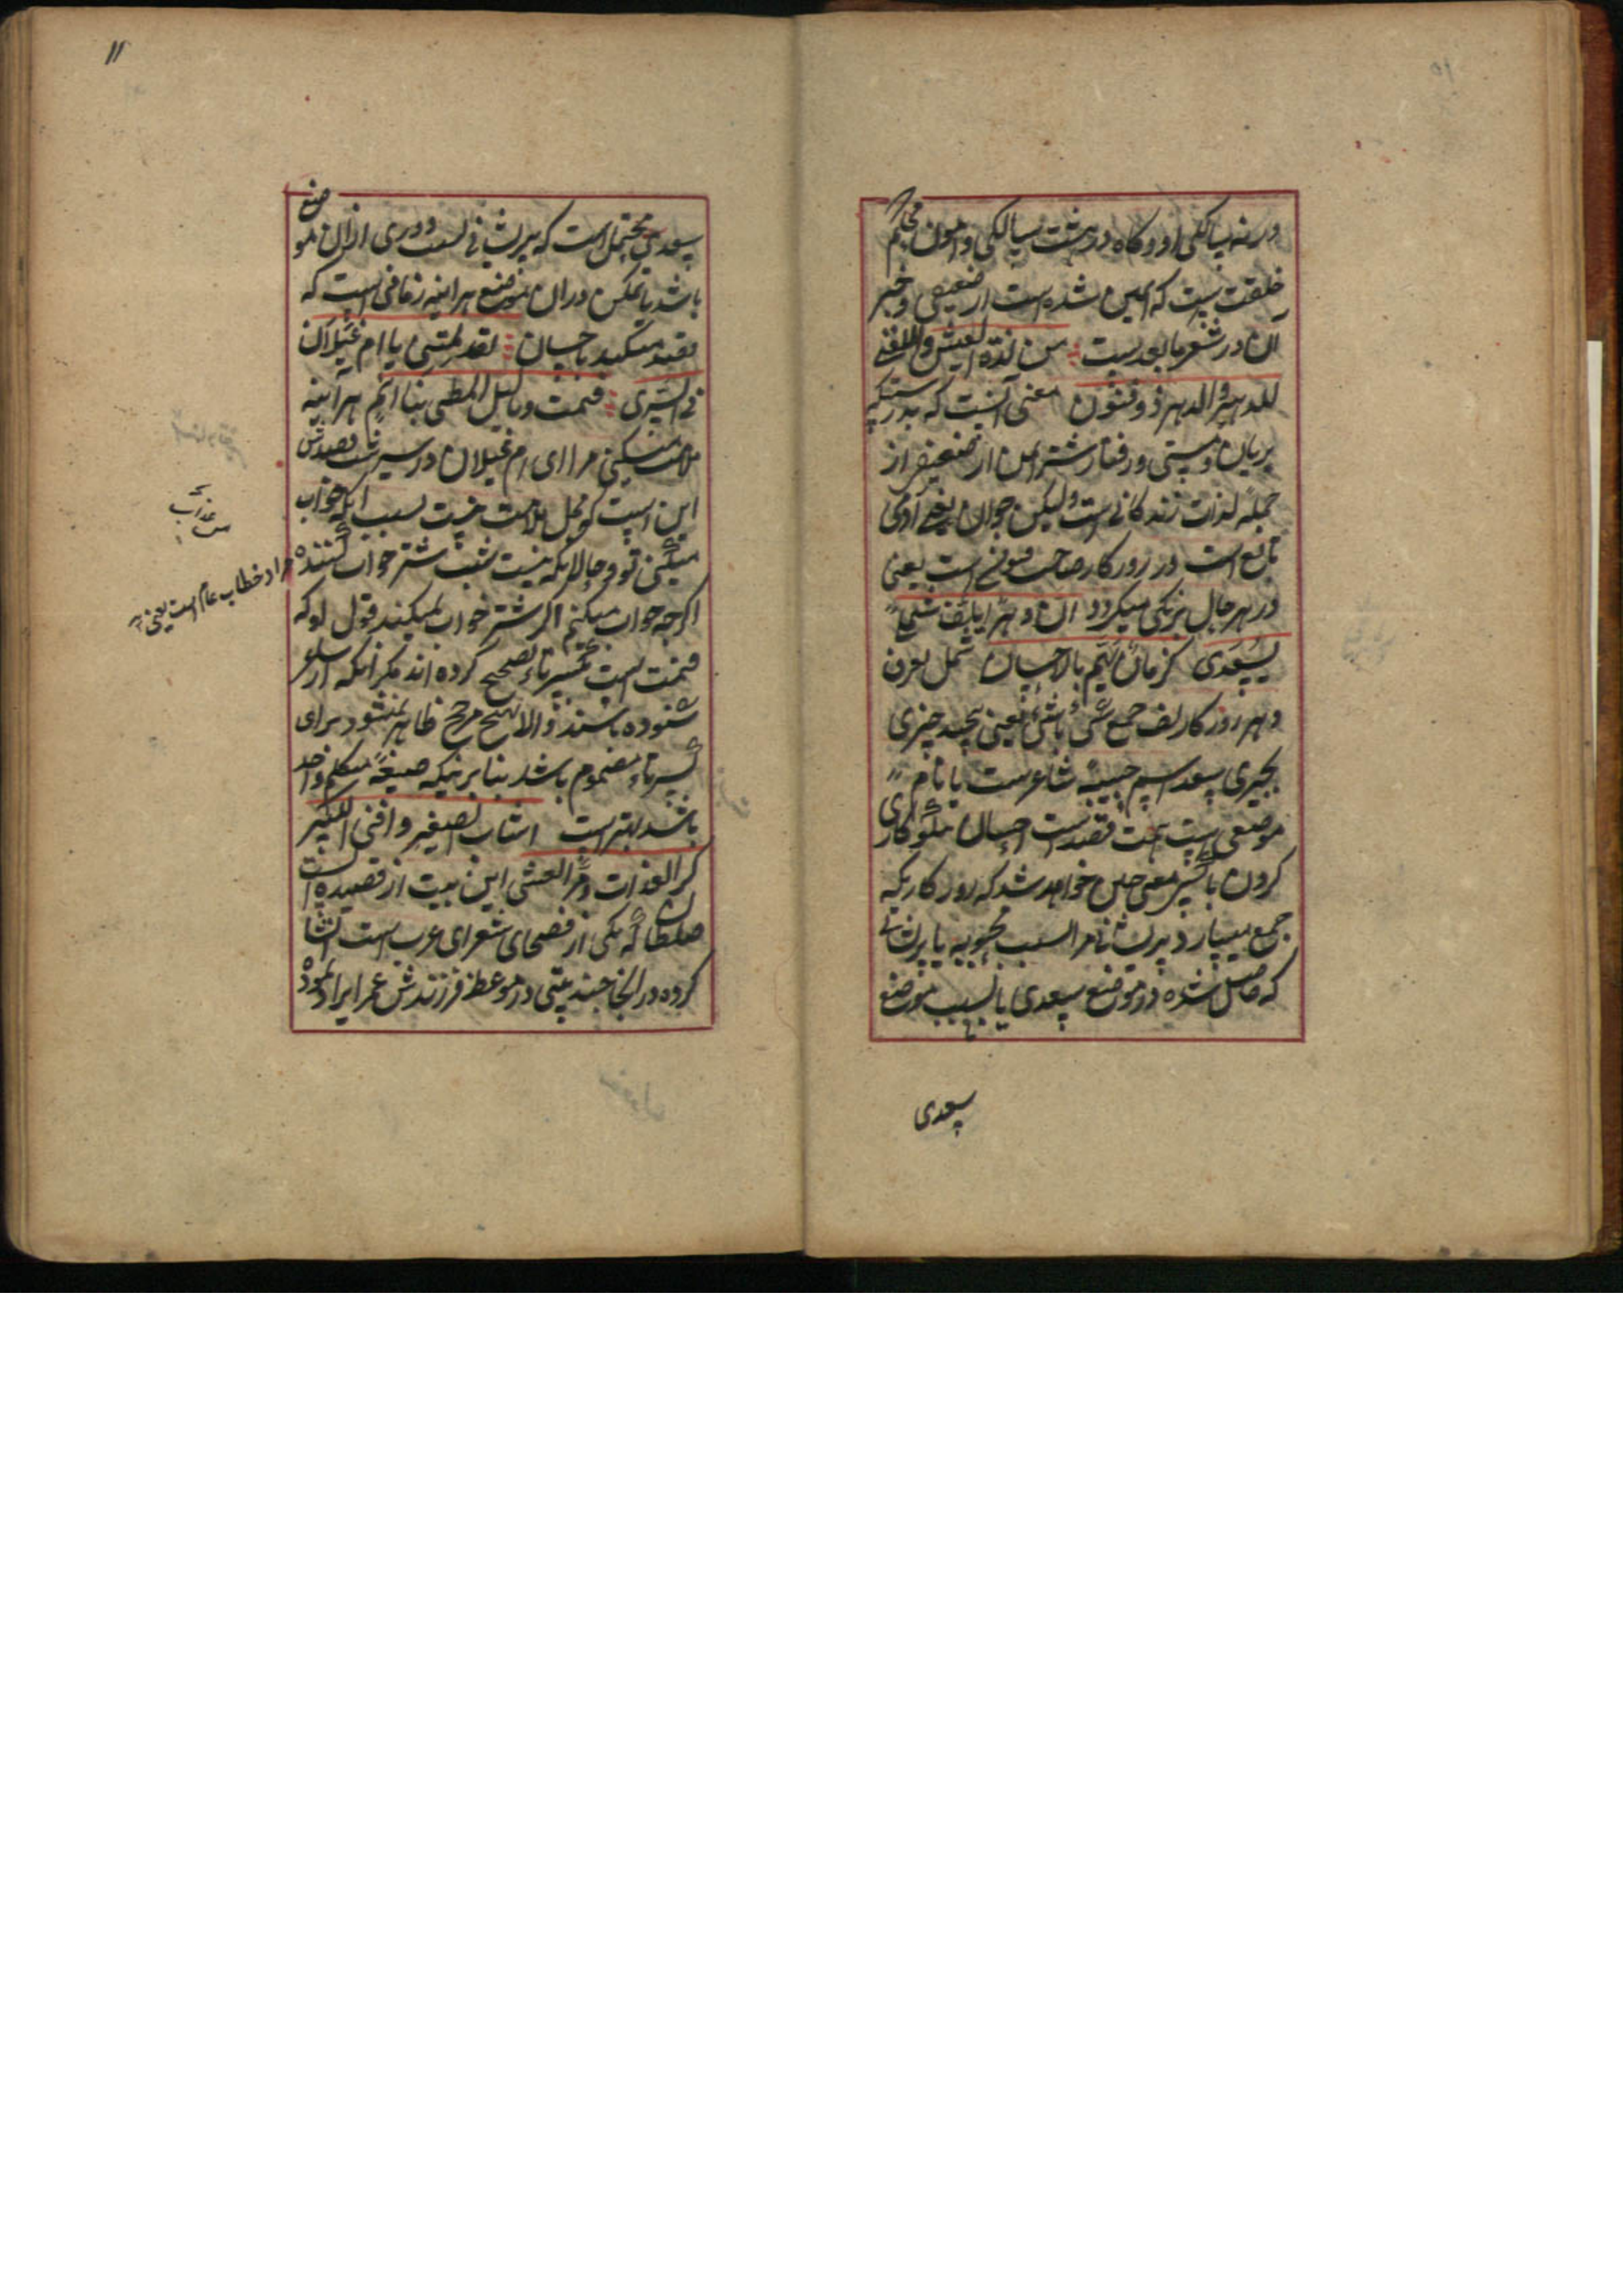 در نه سالگی او و گاه در هشت سالگی و امون محکم
خلقت نیست که ایمن شده است از ضعیفی و خبر
ان در شعر ما بعد ست من لذة العیش والفتی
للدهر والدهر ذو فنون معنی آنست که بدرستیکه
بریان و مستی و رفتار شتر ایمن از ضعیفی از
جمله لذات زندگانی است ولیکن جوان یعنی آدمی
تابع است در روزکار صاحب فنونی است یعنی
در هر حال برنگی میکردد ان دهرا یلف شملی
بسعدی لزمان یهم بالاحسان شمل بعرن
دهر روزکار لف جمع شی باشی یعنی پیچد چیزی
بچیزی سعد اسم حبیبهٔ شاعرست یا نام
موضعی است همت قصدست احسان نیکوکاری
کردن باکسی معنی چنین خواهد شد که روزکاریکه
جمع میسازد پریشانی مرا بسبب محبوبه یا پریشانی
که حاصل شده در موضع سعدی یا بسبب موضع
سعدی
۱۱
سعدی محتمل است که پریشانی بسبب دوری ازان موضع
باشد یا تمکن دران موضع هراینه زمانی است که
قصد میکند باحسان لقد لمتنی یا ام غیلان
فی السری فنمت و ما لیل المطی بنائم هراینه
ملامت میکنی مرا ای ام غیلان در سیر شب قصدش
این است که محل ملامت نیست بسبب اینکه خواب
میکنی تو و حال انکه نیست شب شتر خواب کننده
اکرچه خواب میکنم اکر شتر خواب نمیکند قول او که
فنمت است بکسر تاء تصحیح کرده اند مکر انکه از شاعر
شنوده باشند والا هیچ مرجح ظاهر نمیشود برای
کسر تاء مضموم باشد بنابرینکه صیغهٔ متکلم واحد
باشد بهترست اشاب الصغیر وافنی الکبیر
کر الغدات ومر العشی این بیت از قصیده است
صلطان که یکی از فصحای شعرای عرب است انشا
کرده در انجا چند بیتی در موعظه فرزندش عمر ایراد نموده
مراد خطاب عام است یعنی